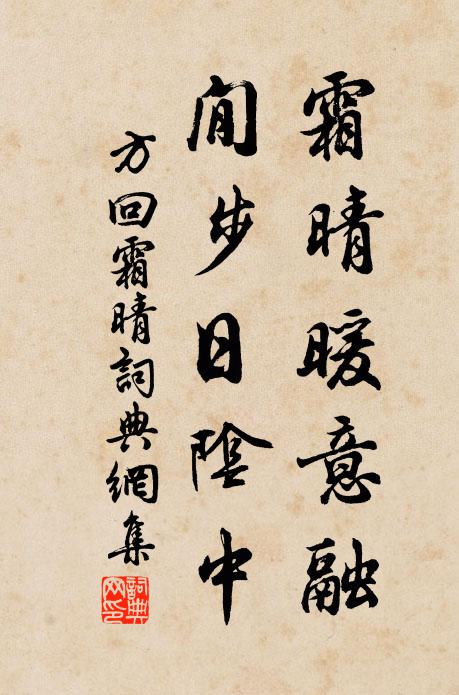 霜晴暖意融
閒步日陰中
方回霜晴詞典網集
詞典網印